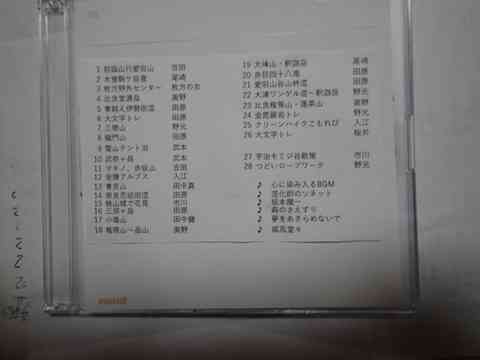 1 初詣山行愛宕山 吉田
2 木曽駒ケ岳夏 尾崎
3 枚方野外センター 枚方の友
4 比良堂満岳 奥野
5 東剱え伊勢街道 田原
6 大文字トレ 田原
7 三嶺山 野元
8 龍門山 田原
9 雪山テント泊 武本
10 武奈ヶ岳 武本
11 マキノ、赤坂山 吉田
12 金勝アルプス 入江
13 曽爾山 田中真
14 奈良芭蕉街道 田原
15 桃山城で花見 市川
16 三俣ヶ岳 田原
17 小塩山 田中健
18 権現山~品山 奥野
19 大峰山・釈迦岳 尾崎
20 赤目四十八滝 田原
21 愛宕山谷山林道 田原
22 大津ワンゲル道~釈迦岳 野元
23 比良権現山・蓬莱山 奥野
24 金毘羅岩トレ 野元
25 クリーンハイクこもれび 入江
26 大文字トレ 桜井
27 宇治モミジ谷散策 市川
28 つどいロープワーク 野元
♪ 心に染み入るBGM
♪ 道化師のソネット
♪ 坂本龍一
♪ 森のさえずり
♪ 夢をあきらめないで
♪ 威風堂々
maxell